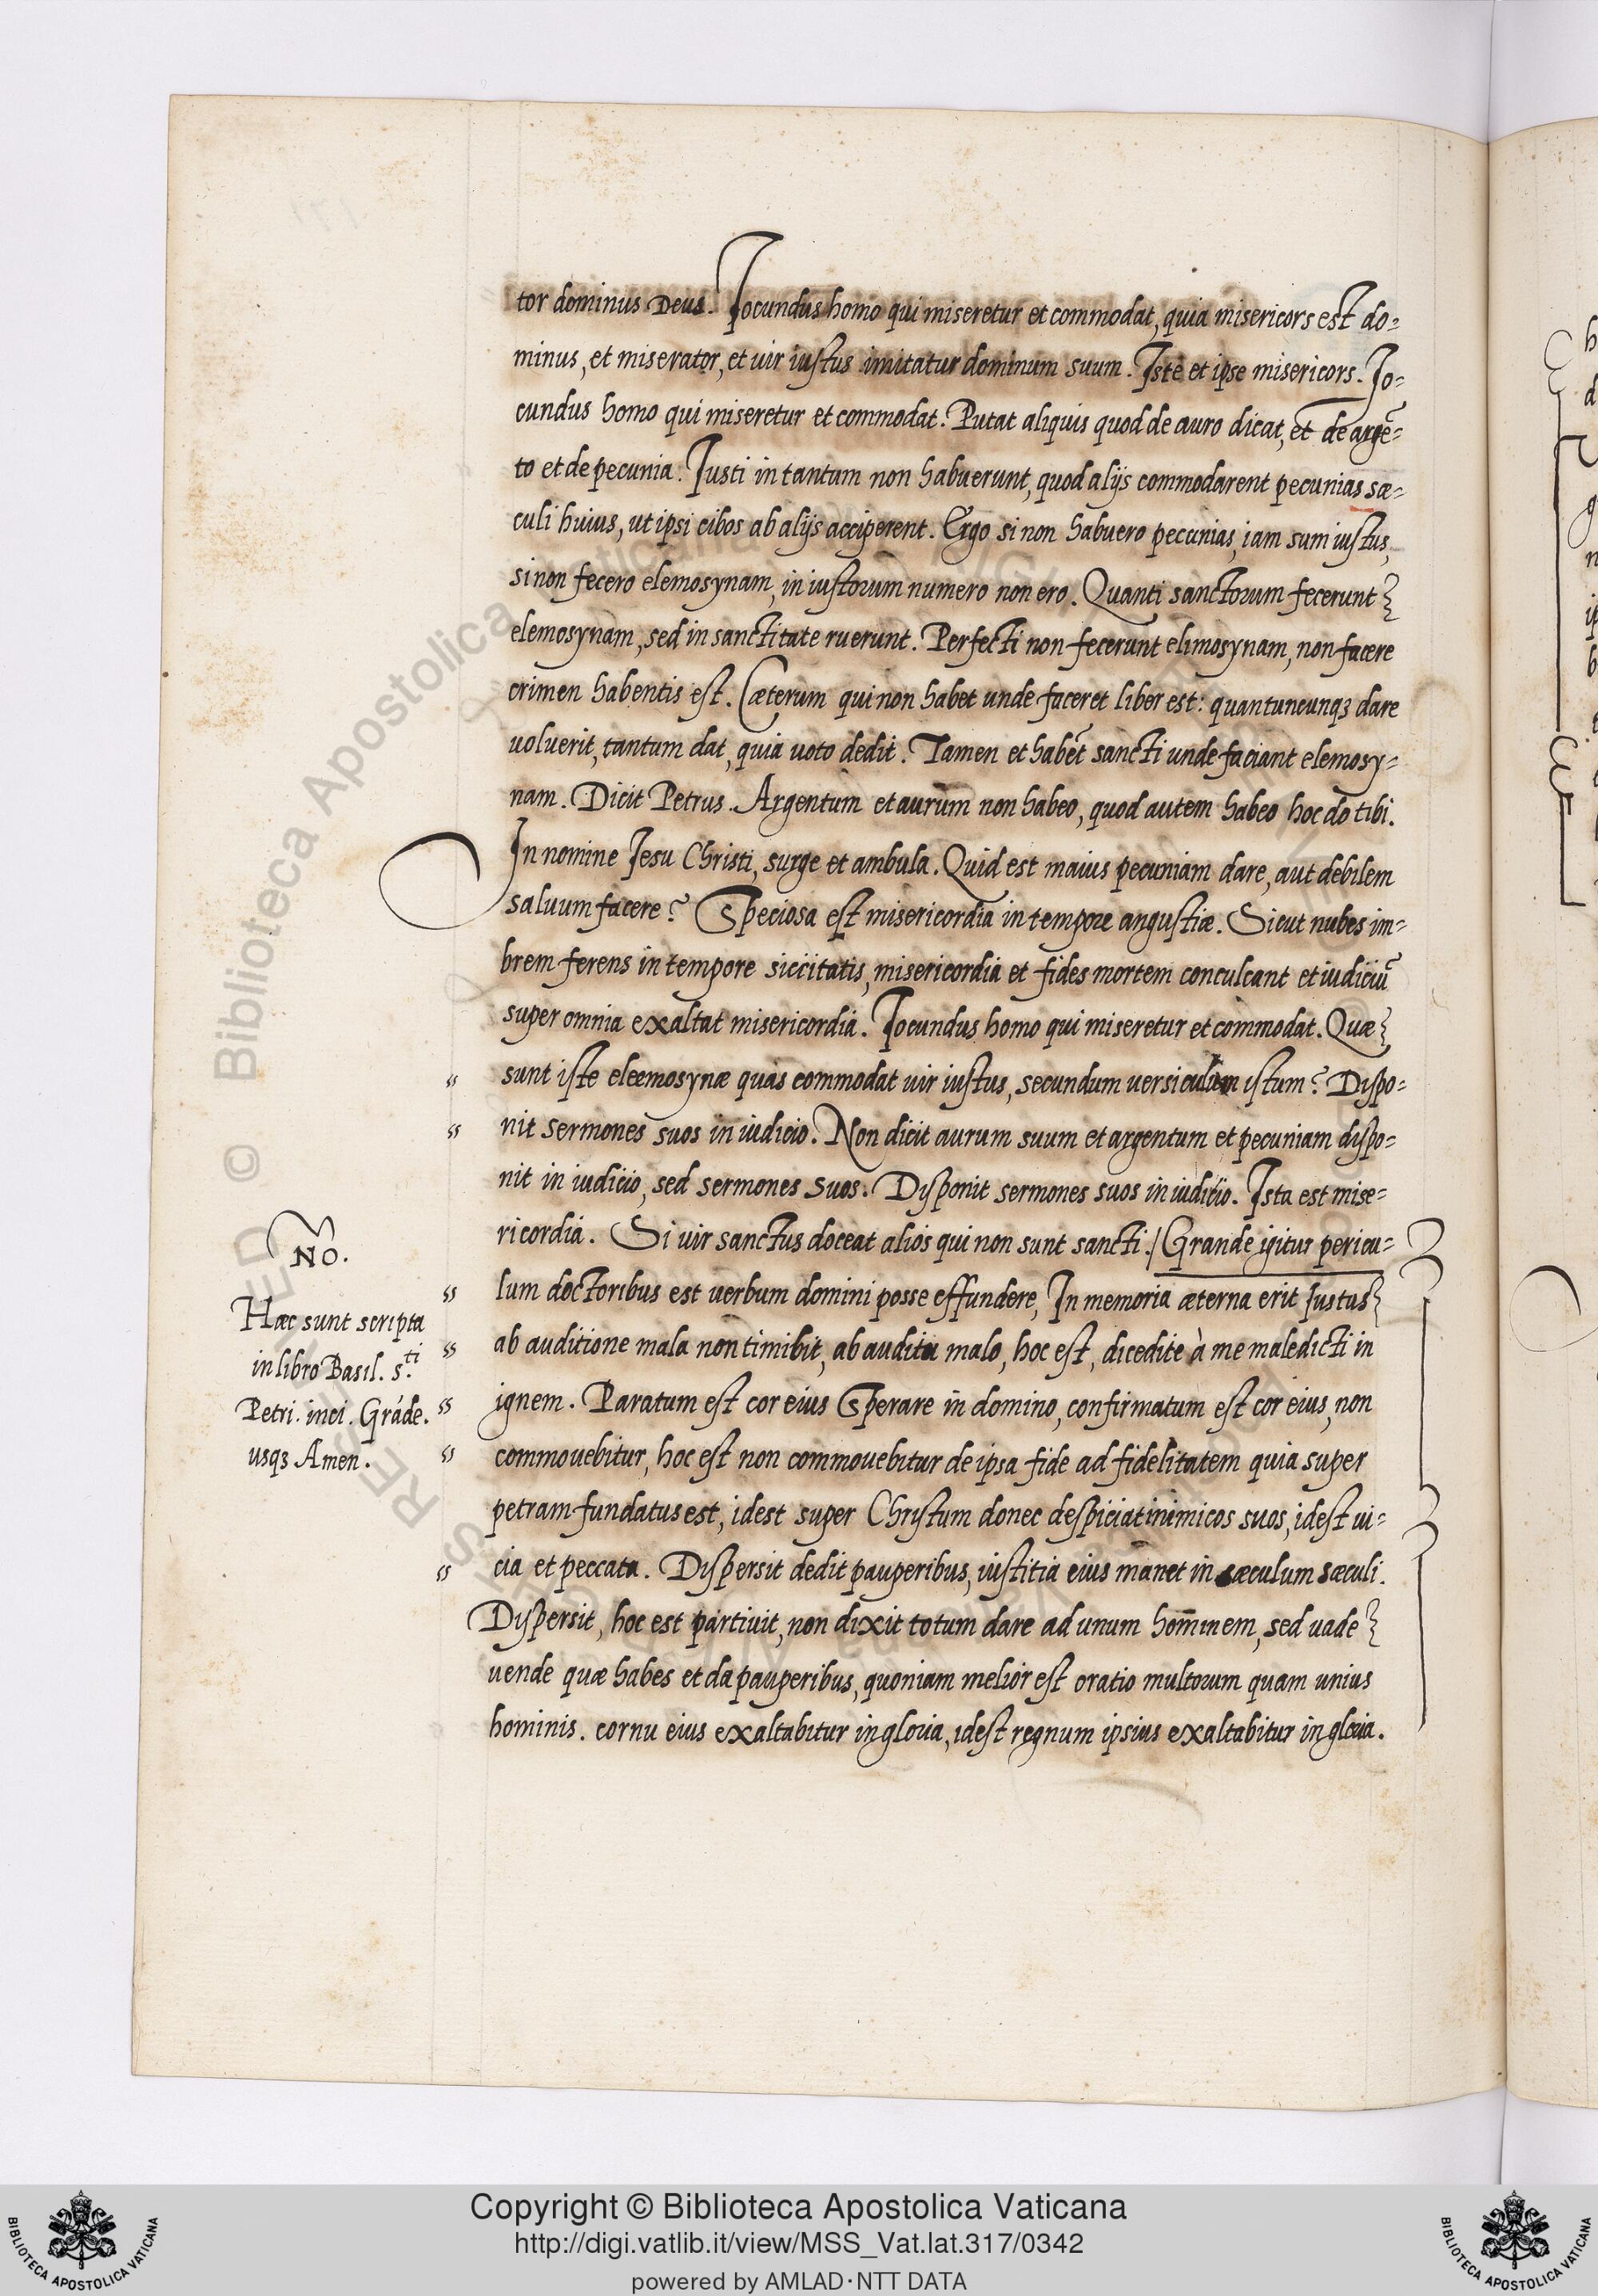 tor dominus Deus. Iocundus homo qui miseretur et commodat, quia misericors est do=
minus, et miserator, et uir iustus imitatur dominum suum. Iste et ipse misericors. Io=
cundus homo qui miseretur et commodat. Putat aliquis quod de auro dicat, et de argẽ=
to et de pecunia. Iusti in tantum non habuerunt, quod alijs commodarent pecunias sæ=
culi huius, ut ipsi cibos ab alijs acciperent. Ergo si non habuero pecunias, iam sum iustus,
si non fecero elemosynam, in iustorum numero non ero. Quanti sanctorum fecerunt
elemosynam, sed in sanctitate ruerunt. Perfecti non fecerunt elimosynam, non facere
crimen habentis est. Cæterum qui non habet unde faceret liber est: quantuncunqꝫ dare
uoluerit, tantum dat, quia uoto dedit. Tamen et habẽt sancti unde faciant elemosy=
nam. Dicit Petrus. Argentum et aurum non habeo, quod autem habeo hoc do tibi.
In nomine Iesu Christi, surge et ambula. Quid est maius pecuniam dare, aut debilem
saluum facere? Speciosa est misericordia in tempore angustiæ. Sicut nubes im=
brem ferens in tempore siccitatis, misericordia et fides mortem conculcant et iudiciũ
super omnia exaltat misericordia. Iocundus homo qui miseretur et commodat. Quæ
sunt iste eleemosynæ quas commodat uir iustus, secundum uersiculum istum? Dispo=
nit sermones suos in iudicio. Non dicit aurum suum et argentum et pecuniam dispo=
nit in iudicio, sed sermones suos. Disponit sermones suos in iuditio. Ista est mise=
ricordia. Si uir sanctus doceat alios qui non sunt sancti./ Grande igitur pericu=
lum doctoribus est uerbum domini posse effundere, In memoria æterna erit Iustus
ab auditione mala non timibit, ab auditu malo, hoc est, dicedite à me maledicti in
ignem. Paratum est cor eius Sperare in domino, confirmatum est cor eius, non
commouebitur, hoc est non commouebitur de ipsa fide ad fidelitatem quia super
petram fundatus est, idest super Christum donec despiciat inimicos suos, idest ui=
cia et peccata. Dispersit dedit pauperibus, iustitia eius manet in sæculum sæculi.
Dispersit, hoc est partiuit, non dixit totum dare ad unum hominem, sed uade
uende quæ habes et da pauperibus, quoniam melior est oratio multorum quam unius
hominis. cornu eius exaltabitur in gloria, idest regnum ipsius exaltabitur in gloria.
NO.
Hæc sunt scripta
in libro Basil. s.ti
Petri. inci. Grãde.
usqꝫ Amen.
RESERVED © Biblioteca Apostolica Vaticana
Copyright © Biblioteca Apostolica Vaticana
http://digi.vatlib.it/view/MSS_Vat.lat.317/0342
powered by AMLAD·NTT DATA
BIBLIOTECA APOSTOLICA VATICANA
BIBLIOTECA APOSTOLICA VATICANA